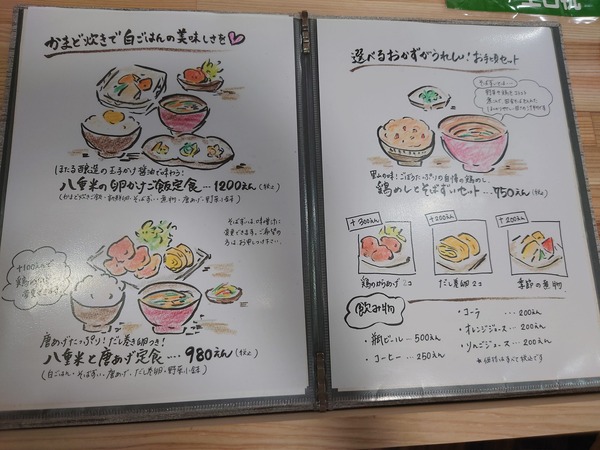 かまど炊きで白ごはんの美味しさを
ほたる醸造の玉子かけ醤油で味わう!
八重米の卵かけご飯定食…1200えん(税込)
そばずいは味噌汁に
変更できます。ご希望の
方はお申しつけ下さい。
+100えんで
鶏めしに
変更できます!
唐あげたっぷり!だし巻き卵つき!
八重米と唐あげ定食…. 980えん(税込)
(白ごはん・そばずい・唐あげ・だし巻卵・野菜小鉢)
選べるおかずがうれしい!お手頃セット
そばずいとは…
里山の味!ごぼうたっぷりの自慢の鶏めし
鶏めしとそばずいセット…750えん(税込)
+300えん
+200えん
+200えん
鶏のからあげ 2コ
だし巻卵 2コ
季節の煮物
飲み物
・瓶ビール … 500えん
・コーヒー … 250えん
・コーラ … 200えん
・オレンジジュース … 200えん
・りんごジュース … 200えん
※価格はすべて税込です